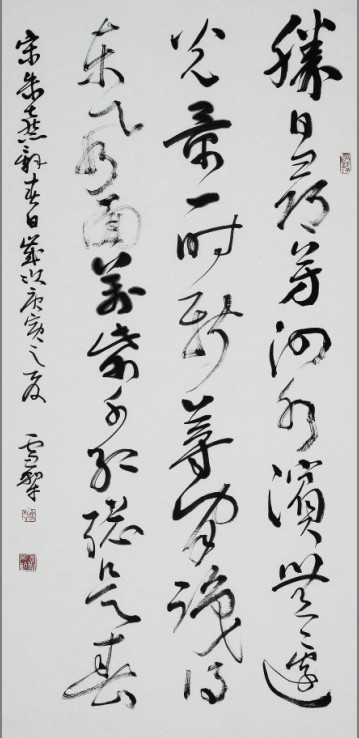 勝日尋芳泗水濱無邊
光景一時新等閒識得
東風面萬紫千紅總是春
宋朱熹詩春日歲次庚寅之夏 雪犁